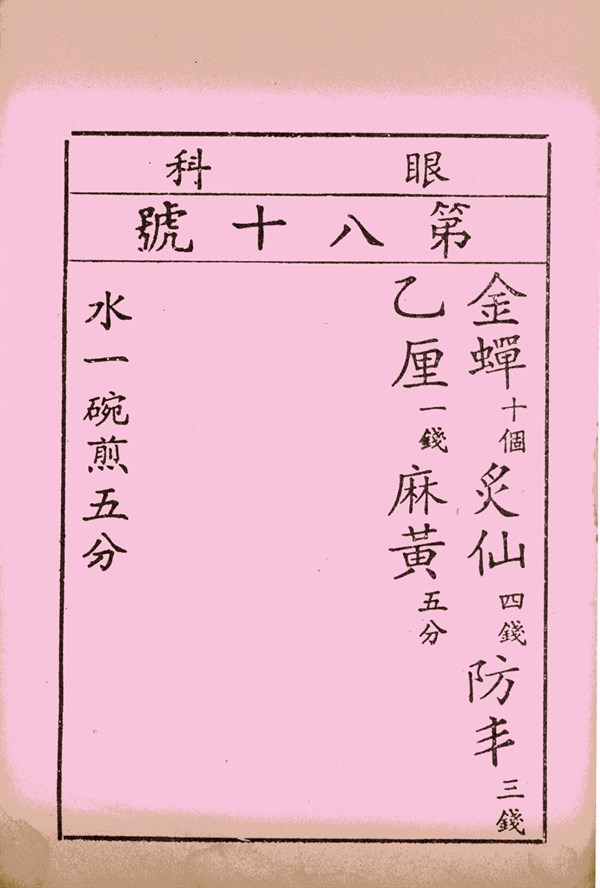 眼科
第八十號
金蟬十個炙仙四錢防丰三錢
乙厘一錢麻黃五分
水一碗煎五分